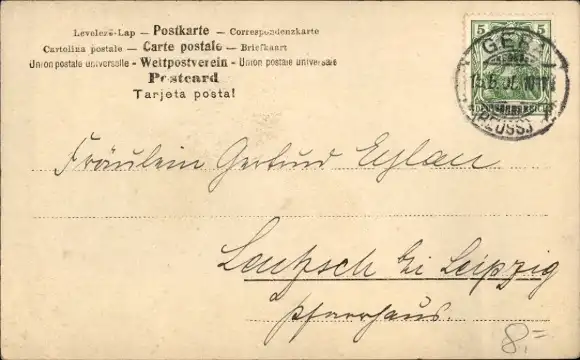 Levelezö-Lap — Postkarte — Correspondenzkarte
Cartolina postale — Carte postale — Briefkaart
Union postale universelle - Weltpostverein - Union postale universelle
Postcard
Tarjeta postal
5 5
GERA
(REUSS)
Fräulein Gertrud Eylau
Leutzsch bei Leipzig
Pfarrhaus.
8,=